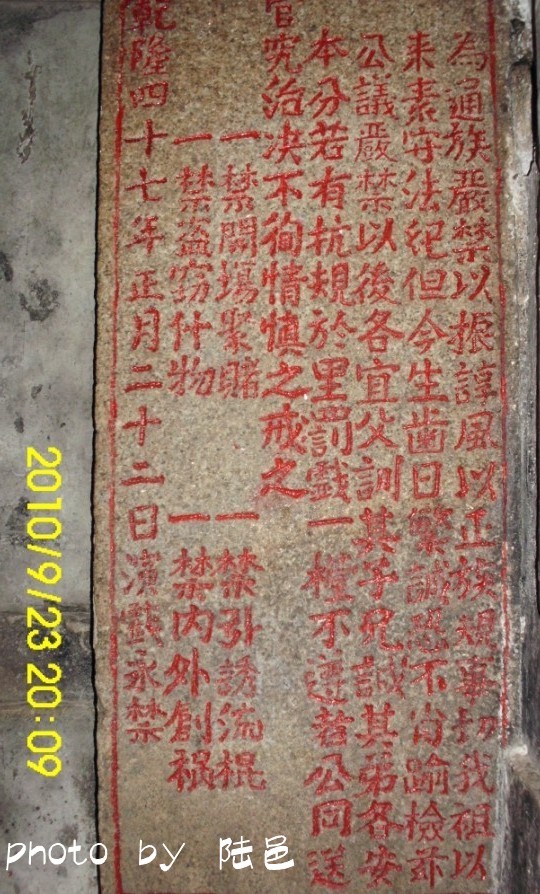 為通族嚴禁以振諄風以正族規事切我祖以
来素守法紀但今生齒日繁誠恐不肖踰檢茲
公議嚴禁以後各宜父訓其子兄誡其弟各安
本分若有抗規於里罰戲一檯不遵者公同送
官究治决不徇情慎之戒之
一禁開場聚賭 一禁引誘流棍
一禁盗窃什物 一禁内外創禍
乾隆四十七年正月二十二日演戲永禁
2010/9/23 20:09
photo by 陆邑